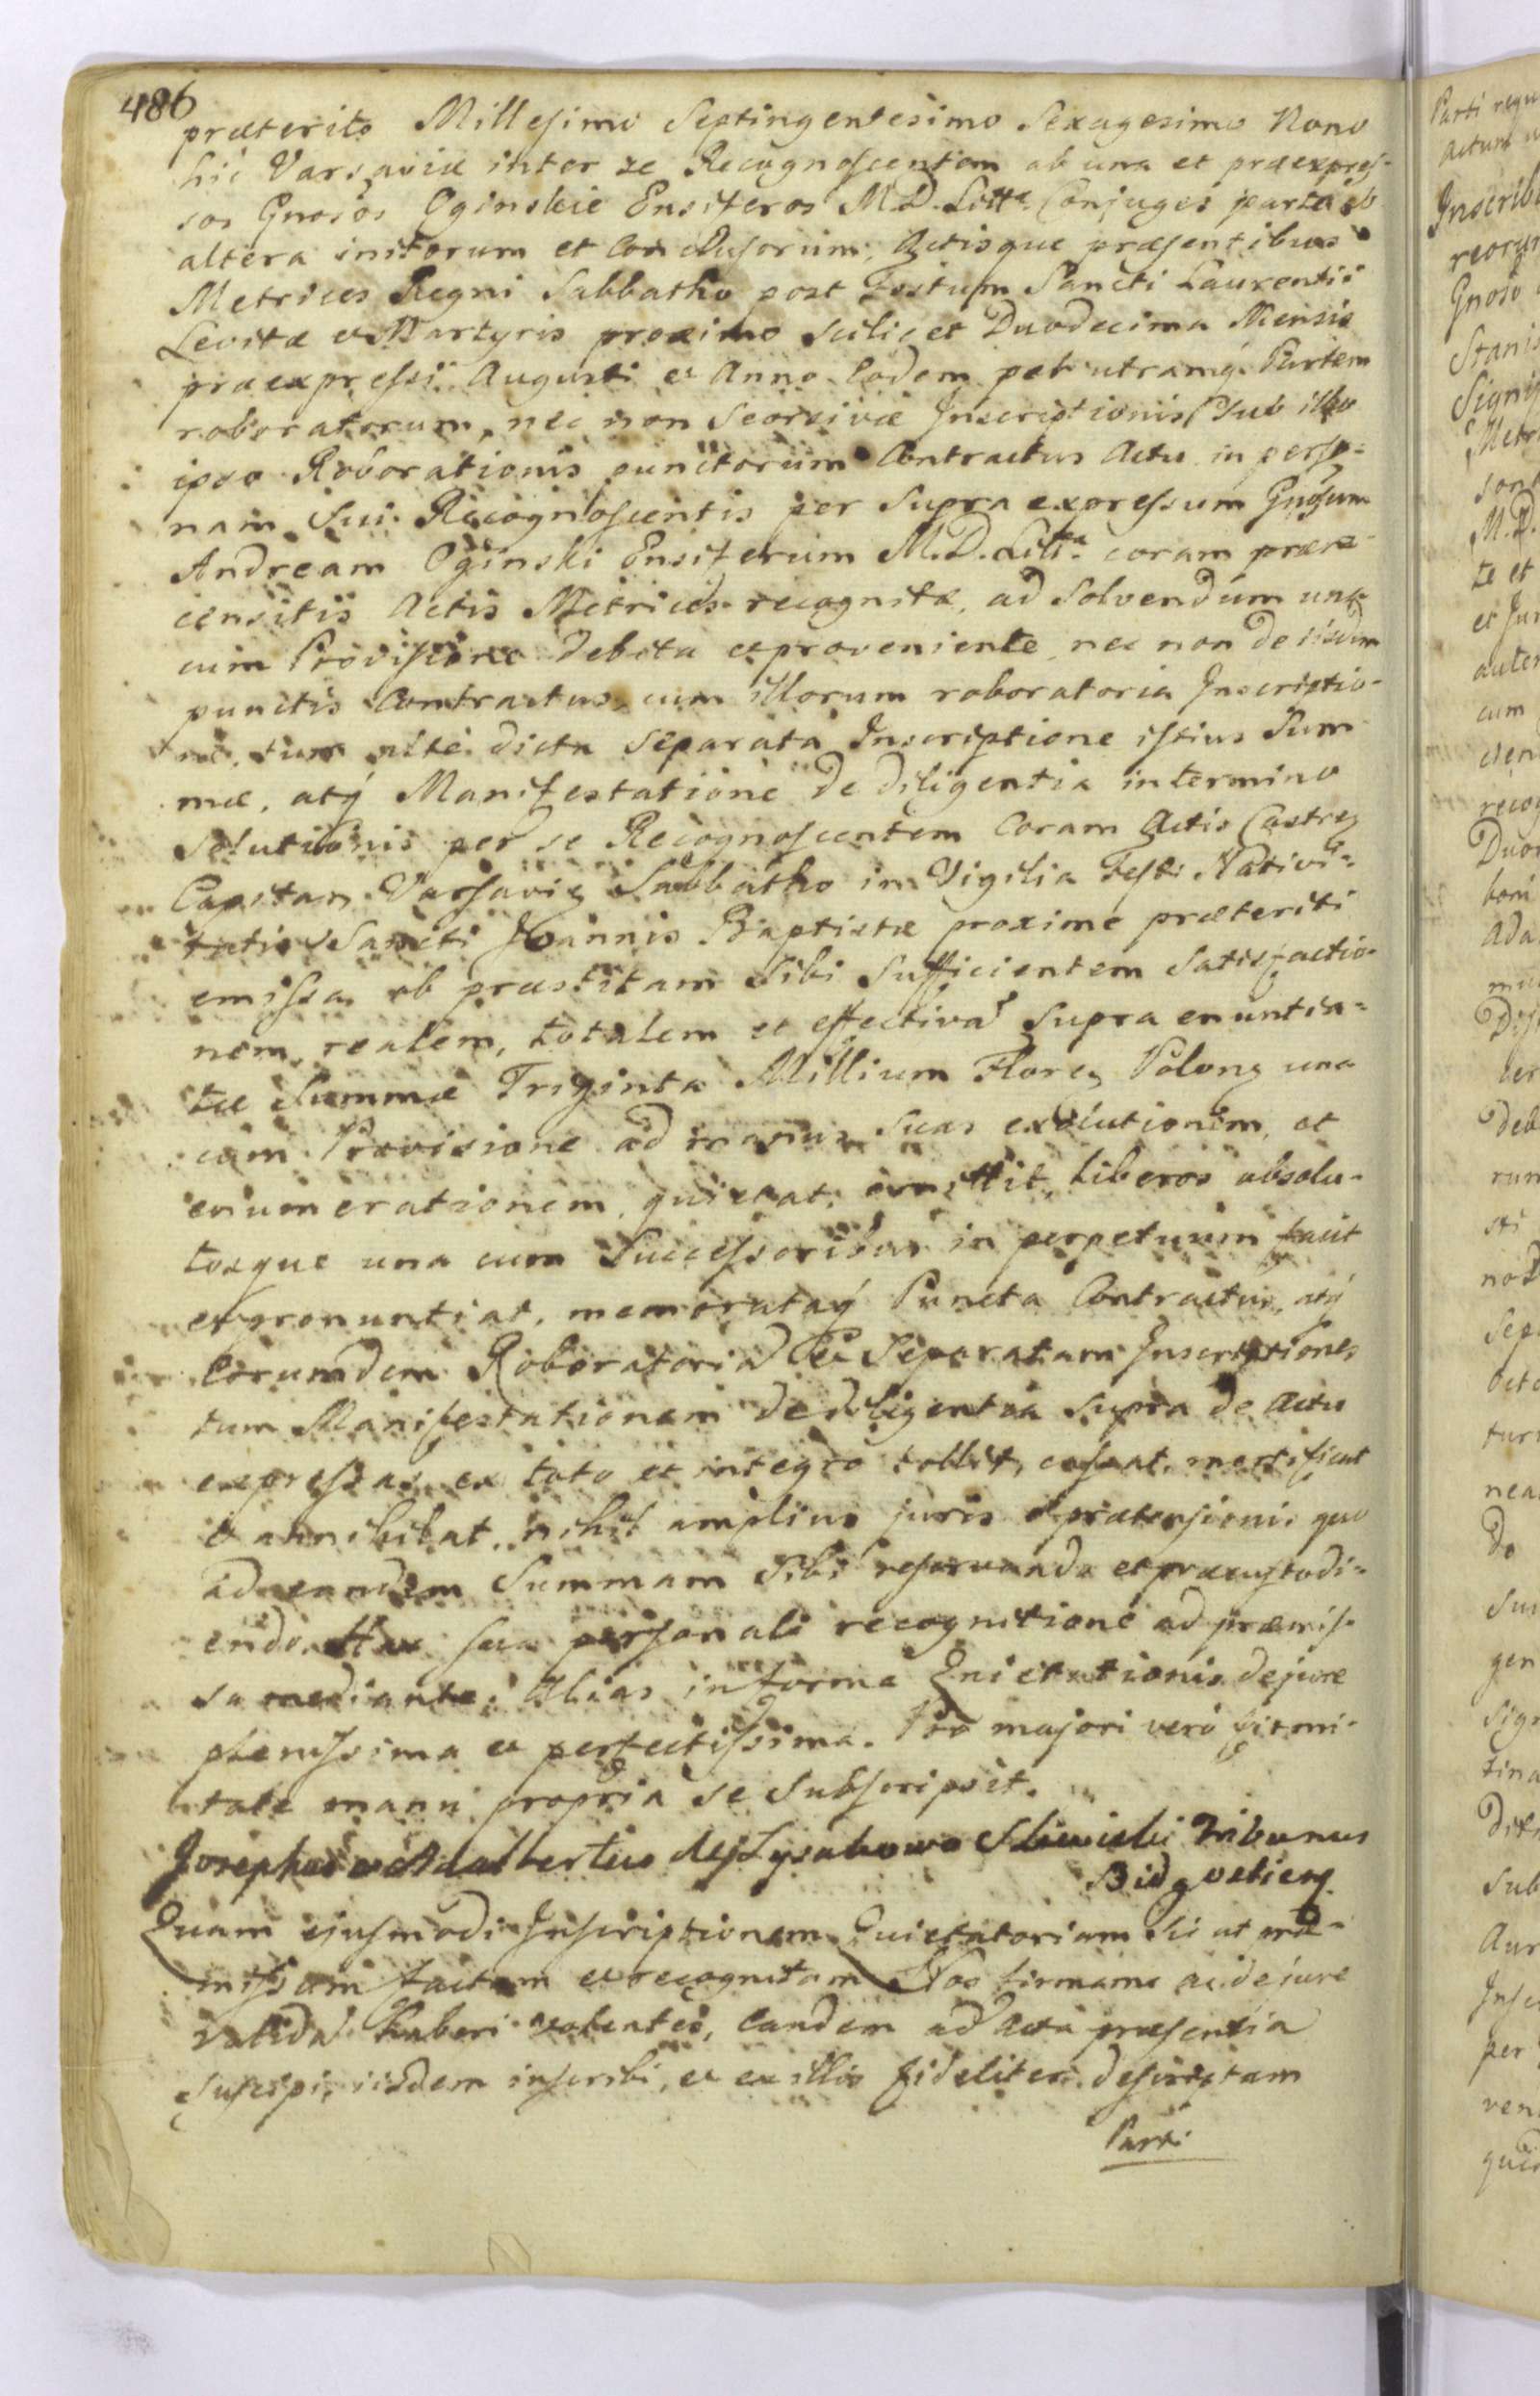 486
præterito Millesimo Septingentesimo Sexagesimo Nono
hic Varsaviæ inter se Recognoscentem ab una et præexpres-
sos Gnosos Oginskie Ensiferos M.D. Litt. Conjuges parte ab
altera initorum et Conclusorum, Actisque præsentibus
Metrices Regni Sabbatho post Festum Sancti Laurentii
Levitæ et Martyris proximo scilicet Duodecima Mensis
præexpressi Augusti et Anno Eodem per utramq. Partem
roboratorum, nec non Seorsivæ Inscriptionis sub illo
ipso Roborationis punctorum Contractus Actu in perso-
nam sui Recognoscentis per supra expressum Gnosum
Andream Oginski Ensiferum M.D. Litt. coram prære-
censitis Actis Metrices recognitæ, ad solvendum una
cum Provisione debita et proveniente, nec non de iisdem
punctis Contractus, cum illorum roboratoria Inscriptio-
ne, tum alte dicta Separata Inscriptione istius Sum
mæ, atq Manifestatione de diligentia in termino
Solutionis per se Recognoscentem Coram Actis Castren
Capitan. Varsavien Sabbatho in Vigilia Festi Nativi-
tatis Sancti Joannis Baptistæ proxime præteriti
emissa ob præstitam sibi sufficientem satisfactio-
nem, realem, totalem et effectivā supra enuntia-
tæ Summæ Triginta Millium Floren Polon una
cum Provisione ad manus suas exolutionem, et
enumerationem, quietat, omittit, liberos absolu-
tosque una cum Successoribus in perpetuum facit
et pronuntiat, memorataq Puncta Contractus, atq
Eorumdem Roboratoriā et Separatam Inscriptiones
tum Manifestationem de diligentia supra de actu
expressas ex toto et integro tollit, cassat, mortificat
et annihilat, nihil amplius juris et prætensionis quo
ad eandem Summam sibi reservando et præcustodi-
endo. Hac sua personali recognitione ad præmis-
sa mediante. Alias in forma Quietationis de jure
plenissima et perfectissima. Pro majori vero firmi-
tate manu propria se subscripsit.
Josephus Adalbertus de Lysakowo Sliwicki Tribunus
Bidgostien
Quam ejusmodi Inscriptionem Quietatoriam sic ut præ-
missam factam et recognitam Nos firmam ac de jure
validā haberi volentes, Eandem ad Acta præsentia
suscipi, iisdem inscribi, et ex illis fideliter descriptam
Parti